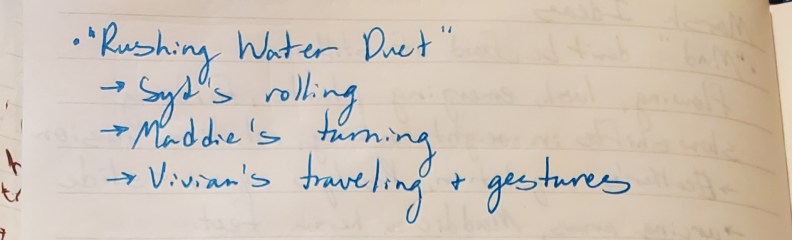 • "Rushing Water Duet"
→ Syd's rolling
→ Maddie's turning
→ Vivian's traveling + gestures